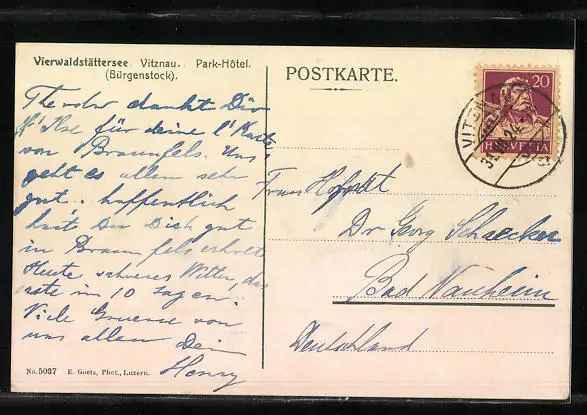 Vierwaldstättersee. Vitznau. Park-Hôtel.
(Bürgenstock).
POSTKARTE.
20
HELVETIA
VITZNAU
Theodor dankt Dir
l' Ilse für deine l' Karte
von Braunfels. Uns
geht es allen sehr
gut, hoffentlich
hast Du Dich gut
in Braunfels erholt
Heute schweres Witter, das
rste in 10 Tagen.
Viele Gruesse von
uns allen Dein
Henry
Frau
Dr Georg
Bad Nauheim
Deutschland
No. 5037 E. Goetz, Phot., Luzern.